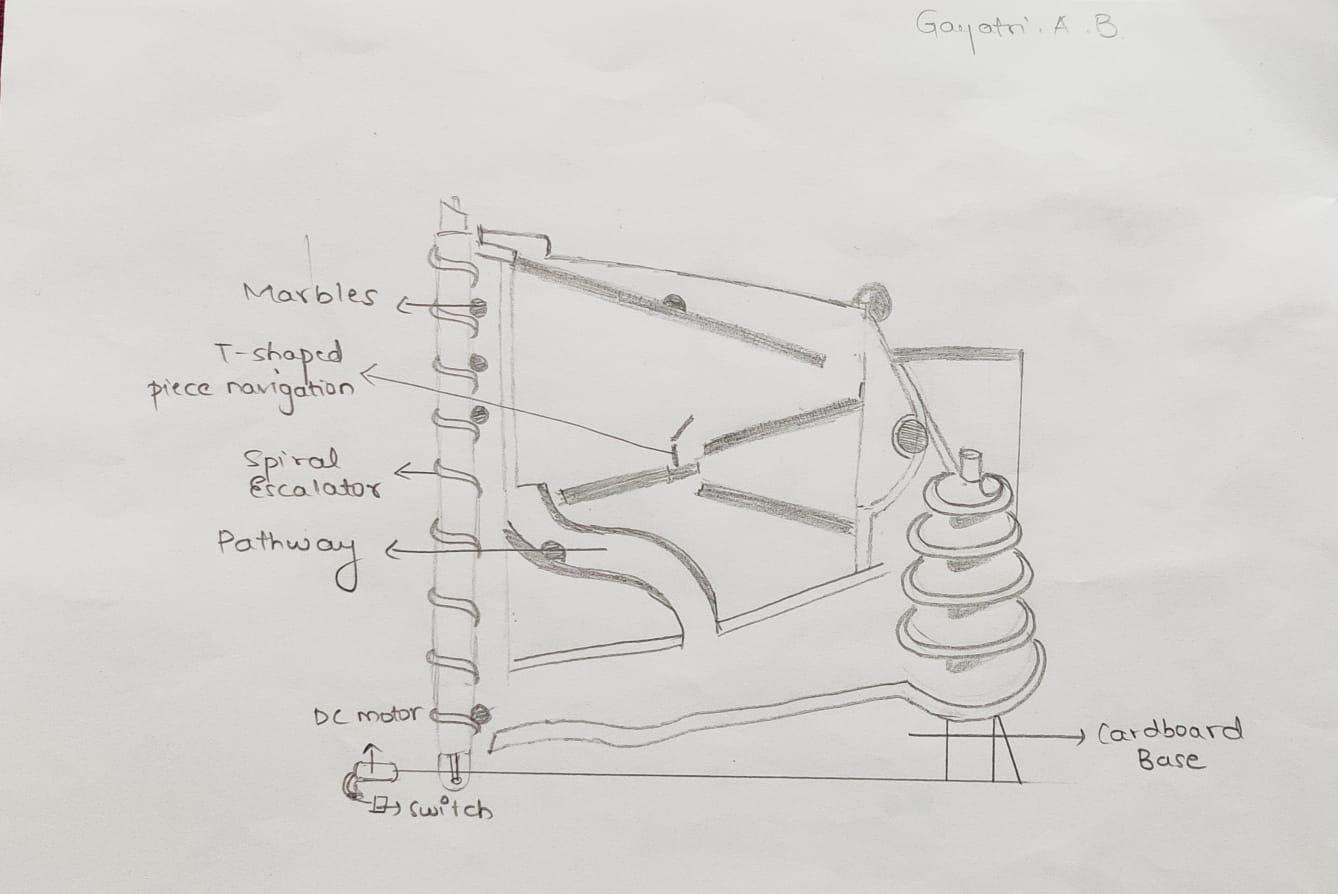 Gayatri. A. B
Marbles
T-shaped
piece navigation
Spiral
Escalator
Pathway
DC motor
switch
Cardboard
Base